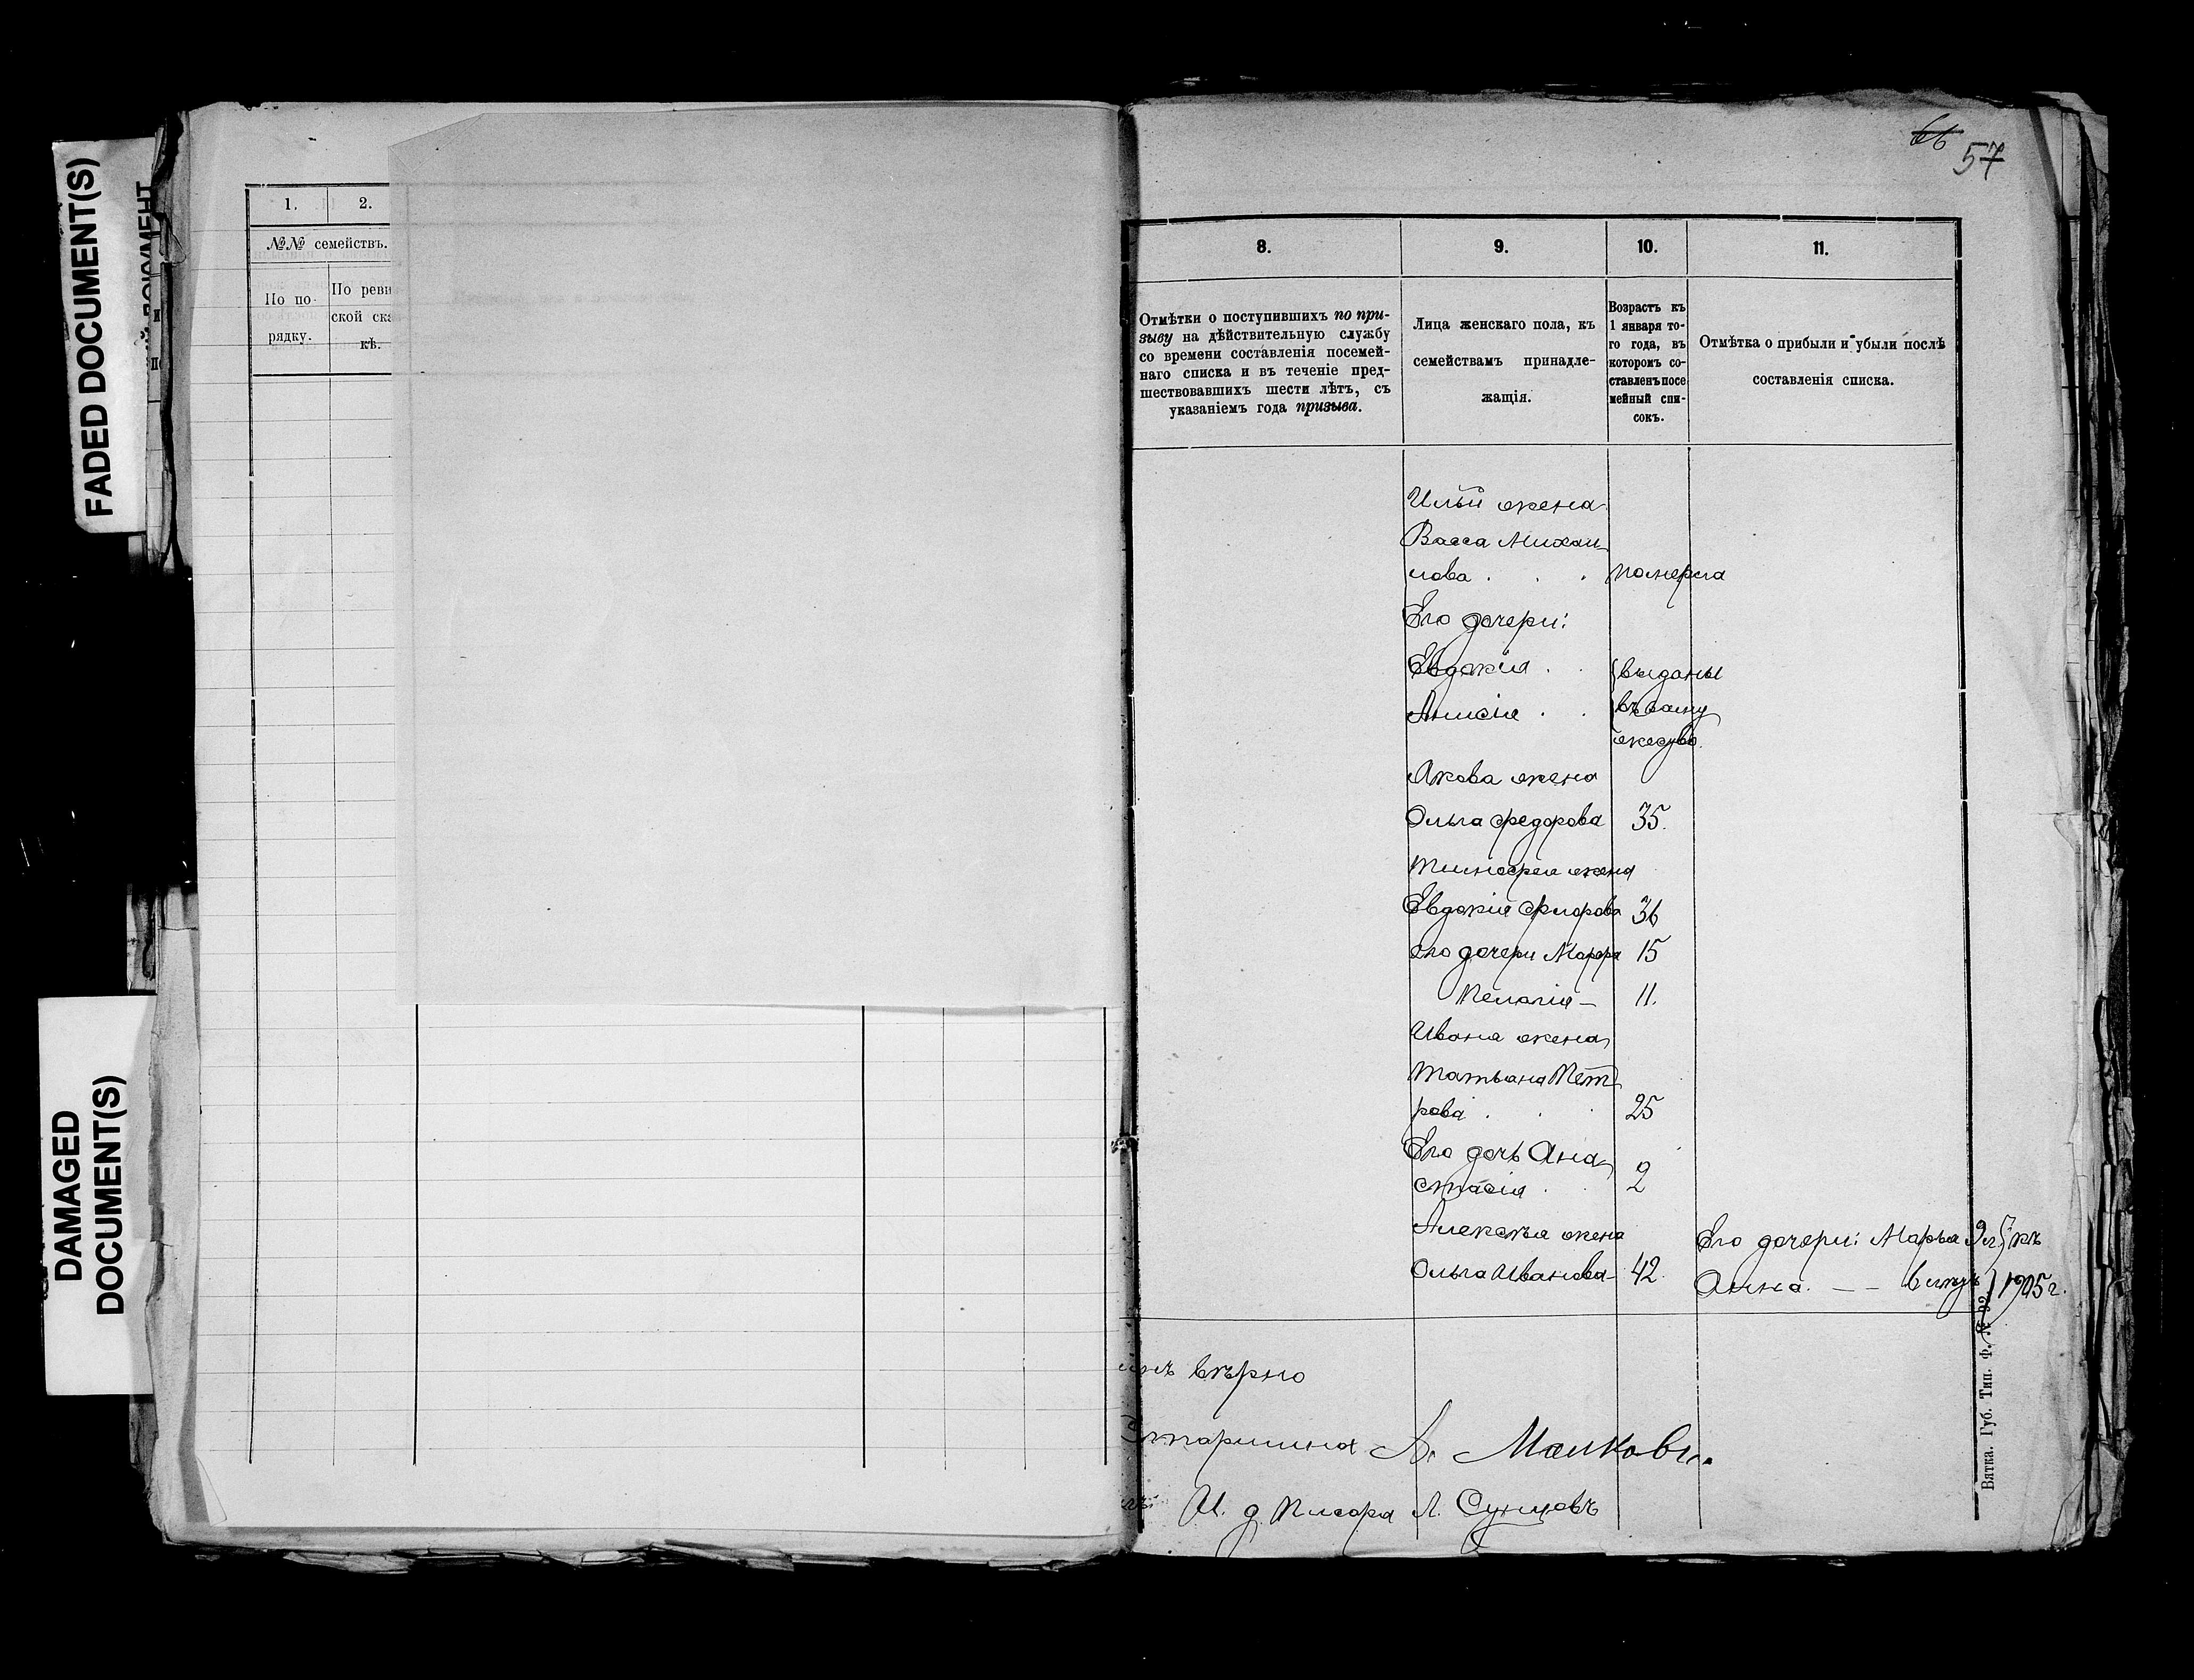 FADED DOCUMENT(S)
DAMAGED
DOCUMENT(S)
1.
2.
№№ семействъ.
По по-
рядку.
По реви
ской ска
кѣ.
66
57
8.
9.
10.
11.
Отмѣтки о поступившихъ по при-
зыву на дѣйствительную службу
со времени составленія посемей-
наго списка и въ теченіе пред-
шествовавшихъ шести лѣтъ, съ
указаніемъ года призыва.
Лица женскаго пола, къ
семействамъ принадле-
жащія.
Возрастъ къ
1 января то-
го года, въ
которомъ со-
ставленъ посе
мейный спи-
сокъ.
Отмѣтка о прибыли и убыли послѣ
составленія списка.
Ильи жена
Васса Михаи
лова . . . померла
Его дочери:
Евдокія . выданы
Анисія . . въ заму
жество.
Якова жена
Ольга Федорова 35.
Тимофея жена
Евдокія Флорова 36
его дочери Марфа 15
Пелагія — 11.
Ивана жена
Татьяна Пет
рова . . . 25
Его дочь Ана
стасія . 2
Алексѣя жена
Ольга Иванова 42
Его дочери: Марья 9 л. къ
Анна. — — 1905 г.
вѣрно
Старшина А. Малковъ.
И. д. Писаря Л. Сунцовъ
Вятка. Губ. Тип. Ф. № 92.